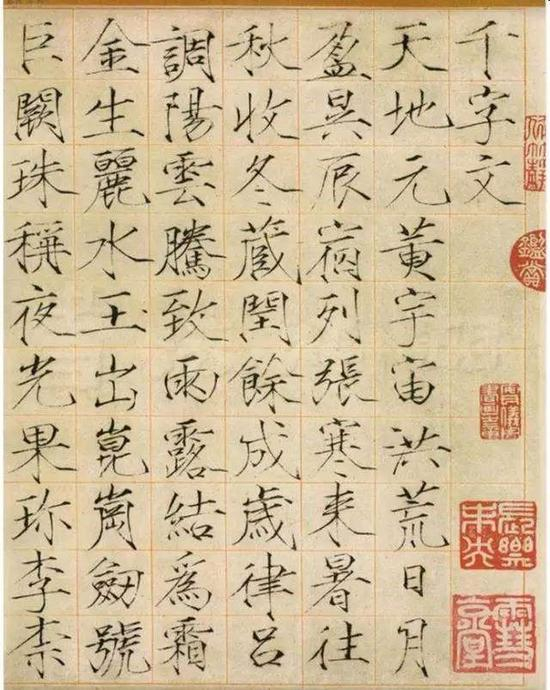 千字文
天地元黃宇宙洪荒日月
盈昃辰宿列張寒来暑往
秋收冬藏閏餘成歲律呂
調陽雲騰致雨露結爲霜
金生麗水玉出崑崗劔號
巨闕珠稱夜光果珎李柰
鑑賞
長樂未央